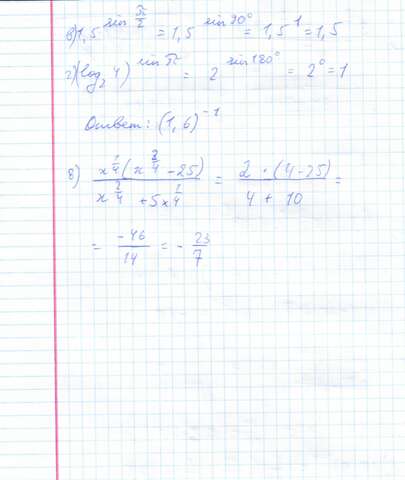 в) 1,5^sin π/2 = 1,5^sin 90° = 1,5^1 = 1,5
г) (log₂ 4)^sin π = 2^sin 180° = 2^0 = 1
Ответ: (1,6)^-1
8) x^1/4 (x^2/4 - 25) / x^2/4 + 5x^1/4 = 2 · (4 - 25) / 4 + 10 =
= -46/14 = - 23/7